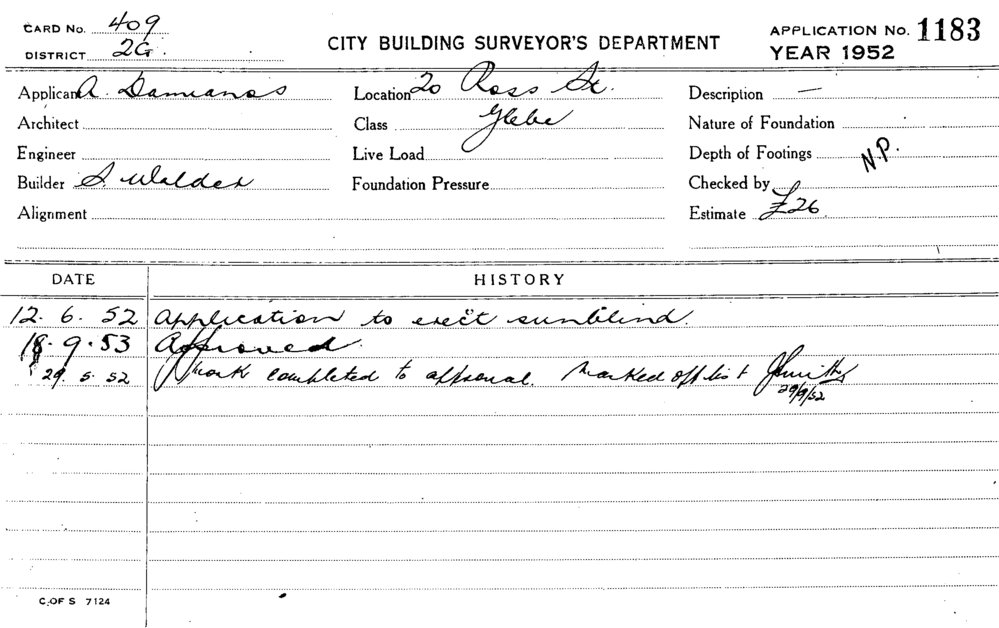 CARD No. 409
DISTRICT 2G.
CITY BUILDING SURVEYOR'S DEPARTMENT
APPLICATION No. 1183
YEAR 1952
Applicant A. Damianos
Location 20 Ross St.
Description —
Architect
Class Glebe
Nature of Foundation
Engineer
Live Load
Depth of Footings N.P.
Builder S. Walder
Foundation Pressure
Checked by
Alignment
Estimate £26
DATE HISTORY
12. 6. 52 Application to erect sunblind.
18. 9. 53 Approved.
29. 5. 52 Work completed to approval. Marked off list
29/9/52
C. OF S 7124